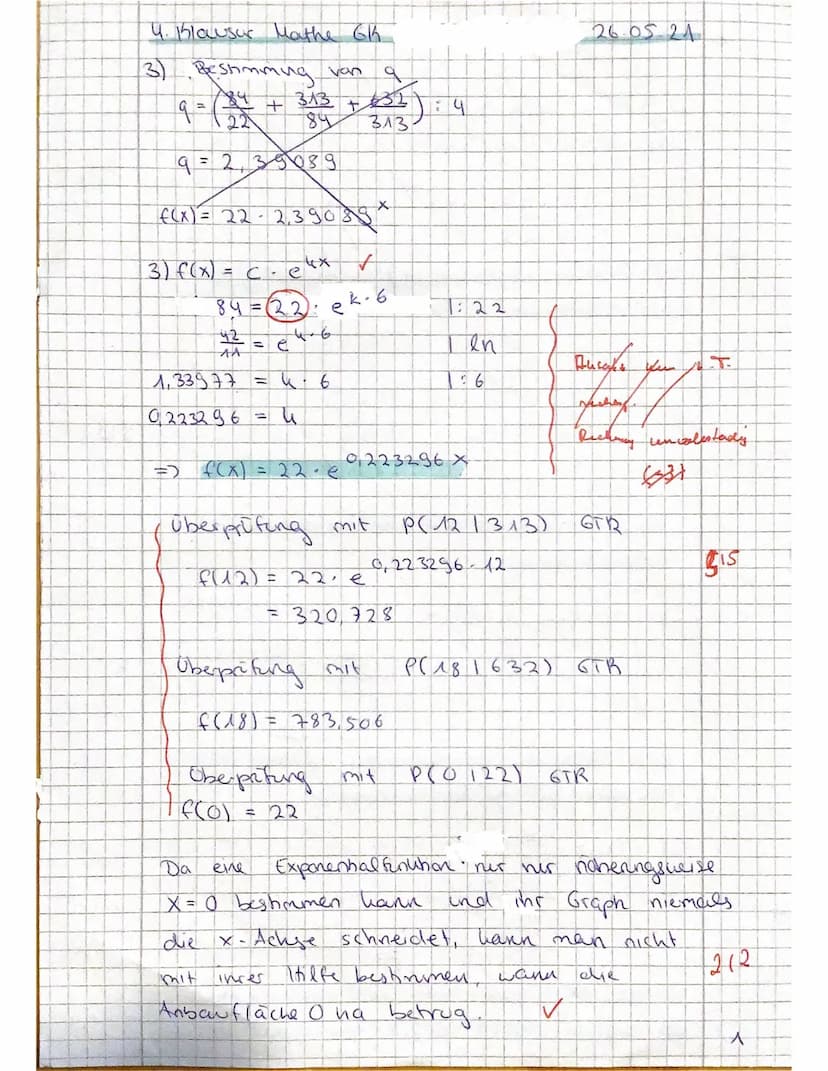 4. Klausur Mathe GK 26.05.21
3) Bestimmung von q
q = (84/22 + 313/84 + 632/313) : 4
q = 2,39089
f(x) = 22 · 2,39089^x
3) f(x) = c · e^kx ✓
84 = 22 · e^k·6 |: 22
42/11 = e^k·6 | ln
1,33977 = k · 6 |: 6
0,223296 = k
Rechnung unvollständig
=> f(x) = 22 · e^0,223296 x
Überprüfung mit P(12|313) GTR
f(12) = 22 · e^0,223296 · 12
= 320,728
Überprüfung mit P(18|632) GTR
f(18) = 783,506
Überprüfung mit P(0|22) GTR
f(0) = 22
Da eine Exponentialfunktion nur nur näherungsweise
x = 0 bestimmen kann und ihr Graph niemals
die x-Achse schneidet, kann man nicht
mit ihrer Hilfe bestimmen, wann die
2/2
Anbaufläche 0 ha betrug. ✓
1